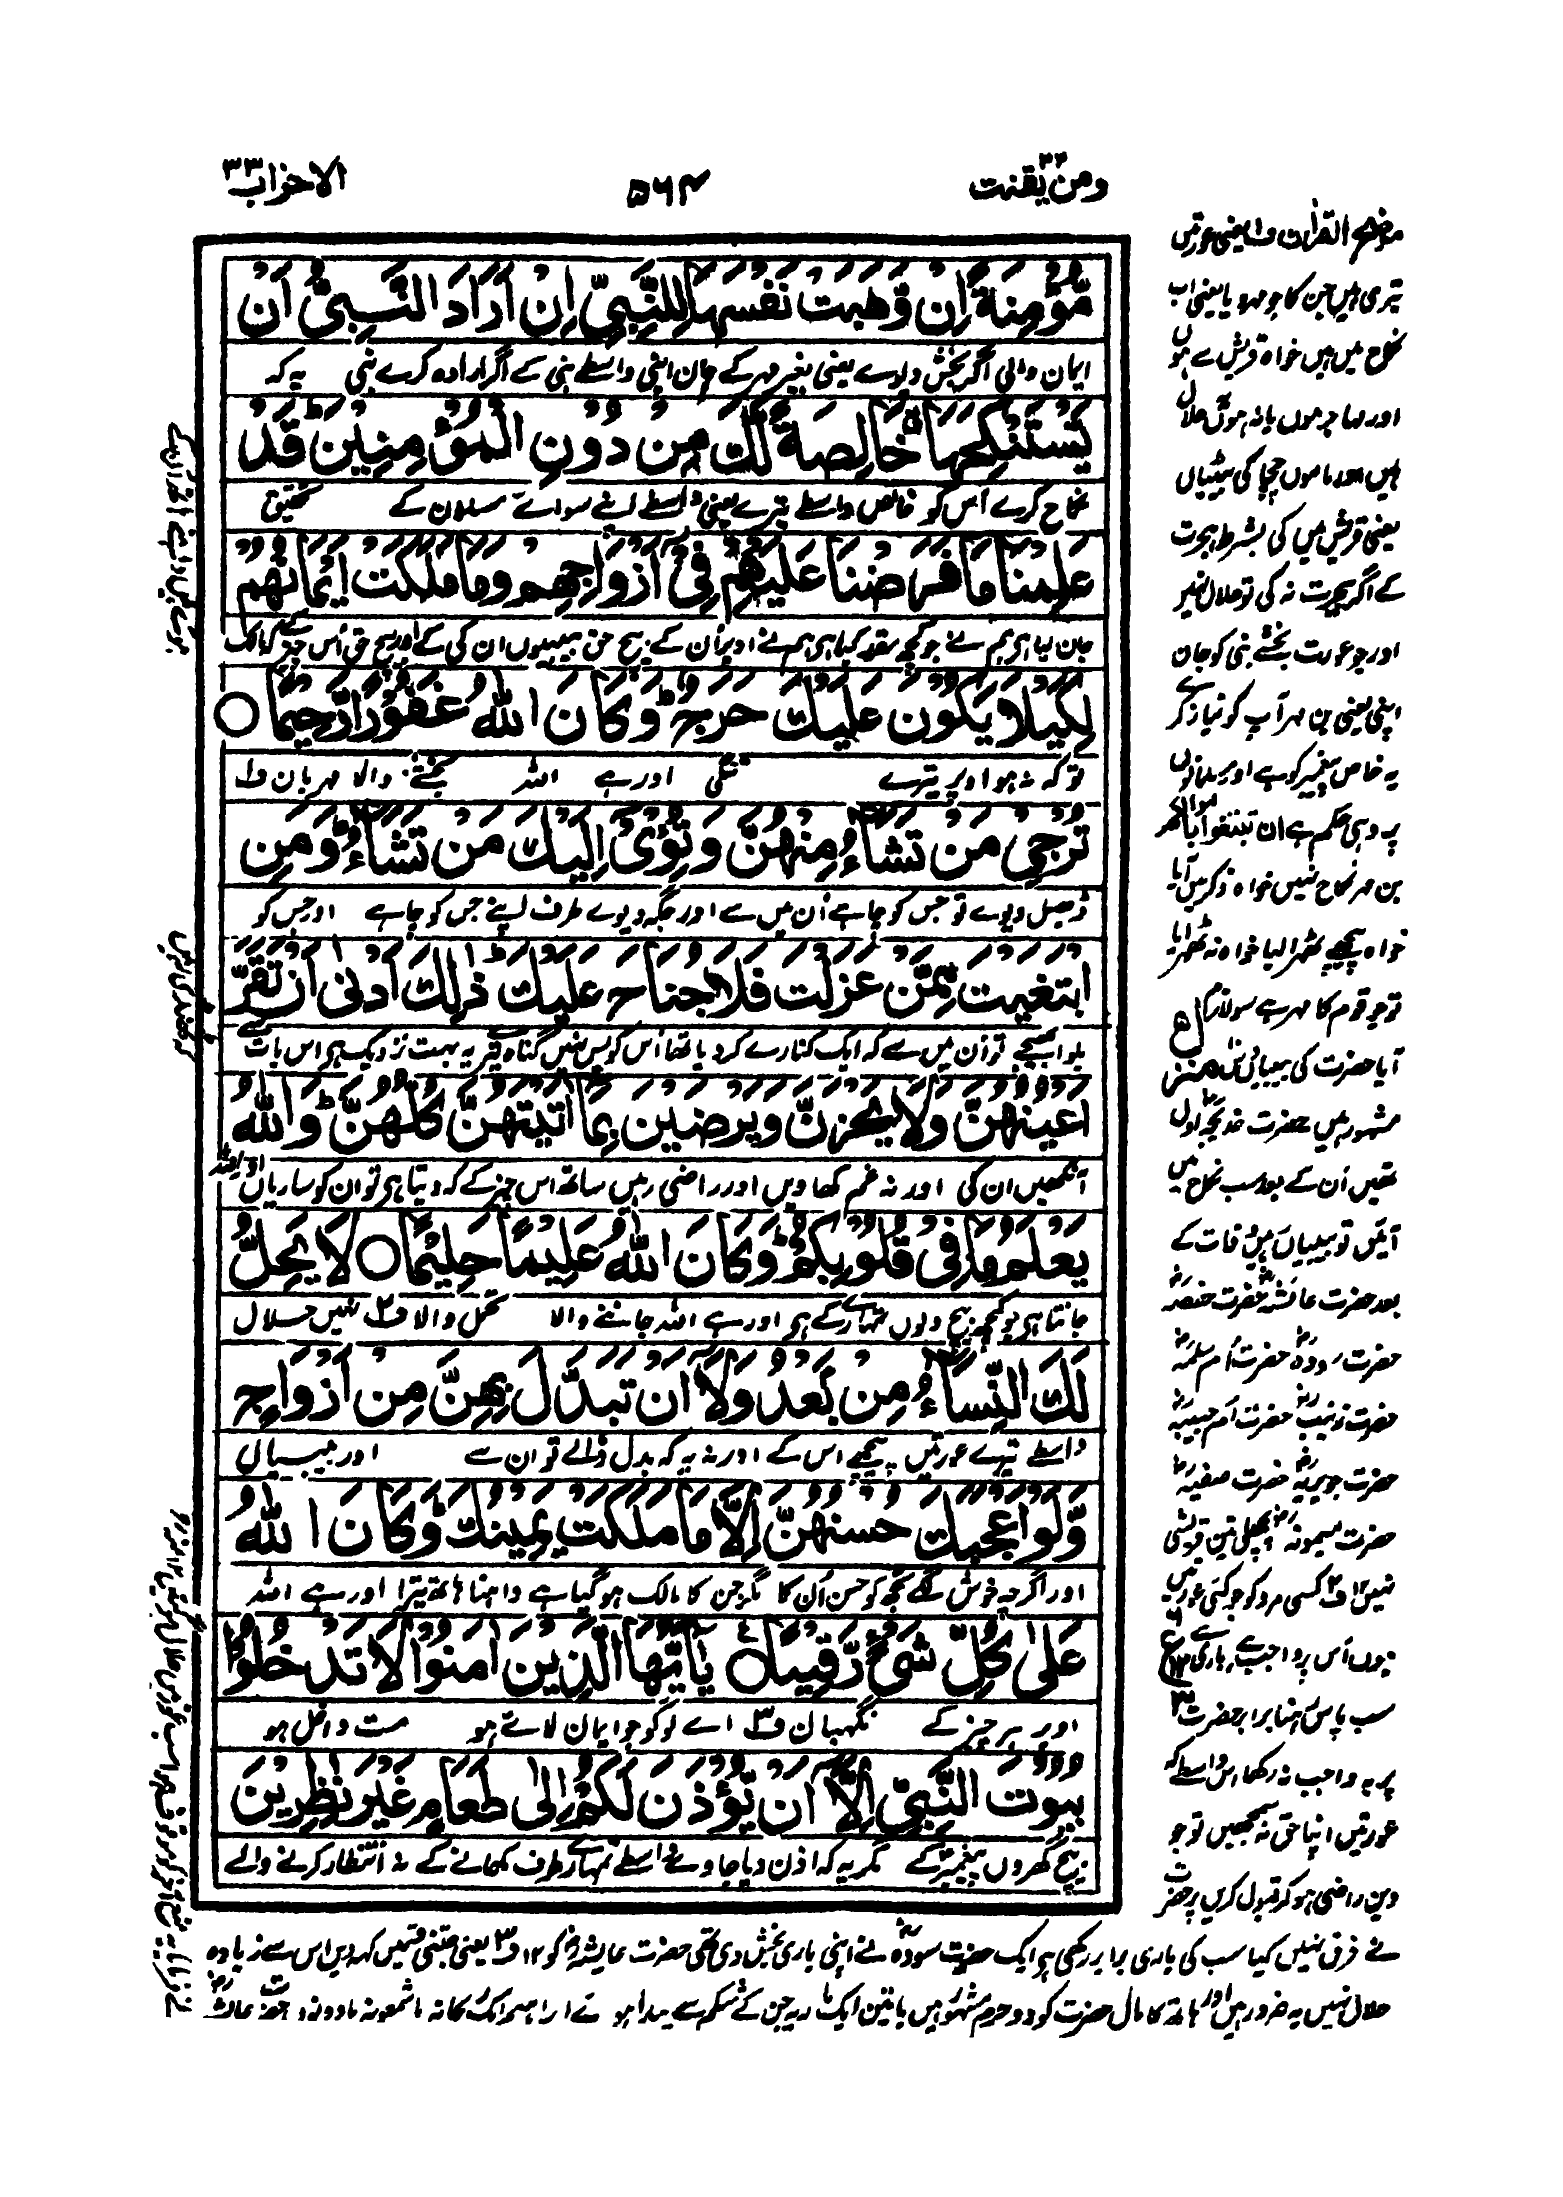 ومن يقنت ۲۲
۵۶۴
الاحزاب ۳۳
مُّؤْمِنَةً اِنْ وَّهَبَتْ نَفْسَهَا لِلنَّبِيِّ اِنْ اَرَادَ النَّبِيُّ اَنْ
ایمان والی اگر بخش دیوے یعنی بغیر مہر کے جان اپنی واسطے نبی کے اگر ارادہ کرے نبی یہ کہ
يَّسْتَنْكِحَهَا خَالِصَةً لَّكَ مِنْ دُوْنِ الْمُؤْمِنِيْنَ ؕ قَدْ
نکاح کرے اُس کو خالص واسطے تیرے یعنی واسطے اپنے سوائے مسلمان کے تحقیق
عَلِمْنَا مَا فَرَضْنَا عَلَيْهِمْ فِيْ اَزْوَاجِهِمْ وَمَا مَلَكَتْ اَيْمَانُهُمْ
جان لیا ہی ہم نے جو کچھ مقرر کیا ہی ہم نے اوپر اُن کے بیچ حق بیبیوں ان کی کے اور بیچ حق اُس چیز کے کہ مالک
لِكَيْلَا يَكُوْنَ عَلَيْكَ حَرَجٌ ؕ وَكَانَ اللّٰهُ غَفُوْرًا رَّحِيْمًا ○
تو کہ نہ ہو اوپر تیرے تنگی اور ہے اللہ بخشنے والا مہربان ف۱
تُرْجِيْ مَنْ تَشَآءُ مِنْهُنَّ وَتُؤْيْٓ اِلَيْكَ مَنْ تَشَآءُ ؕ وَمَنِ
ڈھیل دیوے تو جس کو چاہے اُن میں سے اور جگہ دیوے طرف اپنے جس کو چاہے اور جس کو
ابْتَغَيْتَ مِمَّنْ عَزَلْتَ فَلَا جُنَاحَ عَلَيْكَ ؕ ذٰلِكَ اَدْنٰٓى اَنْ تَقَرَّ
بلوا بھیجے تو اُن میں سے کہ ایک کنارے کر دیا تھا اُس کو پس نہیں گناہ اوپر تیرے یہ بہت نزدیک ہی اس بات سے کہ
اَعْيُنُهُنَّ وَلَا يَحْزَنَّ وَيَرْضَيْنَ بِمَآ اٰتَيْتَهُنَّ كُلُّهُنَّ ؕ وَاللّٰهُ
آنکھیں ان کی اور نہ غم کھاویں اور راضی رہیں ساتھ اس چیز کے کہ دیتا ہی تو ان کو ساریاں اور اللہ
يَعْلَمُ مَا فِيْ قُلُوْبِكُمْ ؕ وَكَانَ اللّٰهُ عَلِيْمًا حَلِيْمًا ○ لَا يَحِلُّ
جانتا ہی جو کچھ بیچ دلوں تمہارے کے ہی اور ہے اللہ جاننے والا تحمل والا ف۲ نہیں حلال
لَكَ النِّسَآءُ مِنْۢ بَعْدُ وَلَآ اَنْ تَبَدَّلَ بِهِنَّ مِنْ اَزْوَاجٍ
واسطے تیرے عورتیں پیچھے اس کے اور نہ یہ کہ بدل ڈالے تو ان سے اور بیبیاں
وَّلَوْ اَعْجَبَكَ حُسْنُهُنَّ اِلَّا مَا مَلَكَتْ يَمِيْنُكَ ؕ وَكَانَ اللّٰهُ
اور اگرچہ خوش لگے تجھ کو حسن اُن کا مگر جن کا مالک ہو گیا ہے داہنا ہاتھ تیرا اور ہے اللہ
عَلٰى كُلِّ شَيْءٍ رَّقِيْبًا ○ يٰٓاَيُّهَا الَّذِيْنَ اٰمَنُوْا لَا تَدْخُلُوْا
اوپر ہر چیز کے نگہبان ف۳ اے لوگو جو ایمان لائے ہو مت داخل ہو
بُيُوْتَ النَّبِيِّ اِلَّآ اَنْ يُّؤْذَنَ لَكُمْ اِلٰى طَعَامٍ غَيْرَ نٰظِرِيْنَ
بیچ گھروں پیغمبر کے مگر یہ کہ اذن دیا جاوے واسطے تمہارے طرف کھانے کے نہ انتظار کرنے والے
موضح القرآن ف۱ یعنی عورتیں
تیری ہیں جن کا جو مہر دیا یعنی اب
نکاح میں ہیں خواہ قریش سے ہوں
اور مہاجر ہوں یا نہ ہوں حلال
ہیں اور ماموں چچا کی بیٹیاں
یعنی قریش میں کی بشرط ہجرت
کے اگر ہجرت نہ کی تو حلال نہیں
اور جو عورت بخشے نبی کو جان
اپنی یعنی بن مہر آپ کو نیاز کرے
یہ خاص پیغمبر کو ہے اور مسلمانوں
پر وہی حکم ہے ان تبتغوا باموالکم
بن مہر نکاح نہیں خواہ ذکر میں آیا
خواہ پیچھے ٹھہرا لیا خواہ نہ ٹھہرایا
تو جو قوم کا مہر ہے سو لازم
آیا حضرت کی بیبیاں
مشہور ہیں حضرت خدیجہ اول
تھیں اُن کے بعد سب نکاح میں
آئیں تو بیبیاں ہیں وفات کے
بعد حضرت عائشہ حضرت حفصہ
حضرت سودہ حضرت اُم سلمہ
حضرت زینب حضرت اُم حبیبہ
حضرت جویریہ حضرت صفیہ
حضرت میمونہ پچھلی تین قریشی
نہیں ۱۲ ف۲ کسی مرد کو جو کئی عورتیں
ہوں اُس پر واجب ہے باری سے
سب پاس رہنا برابر حضرت
پر یہ واجب نہ رکھا اس واسطے کہ
عورتیں اپنا حق نہ سمجھیں تو جو
دیں راضی ہو کر قبول کریں پر حضرت
نے فرق نہیں کیا سب کی باری برابر رکھی ہی ایک حضرت سودہ نے اپنی باری بخش دی تھی حضرت عائشہ کو ۱۲ ف۳ یعنی جتنی قسمیں کہہ دیں اس سے زیادہ
حلال نہیں یہ ضرور ہیں اور ہاتھ کا مال حضرت کو دو حرم مشہور ہیں یا تین ایک ماریہ جن کے شکم سے پیدا ہوئے ابراہیم ایک ریحانہ یا شمعونہ یا دونوں حضرت عائشہ